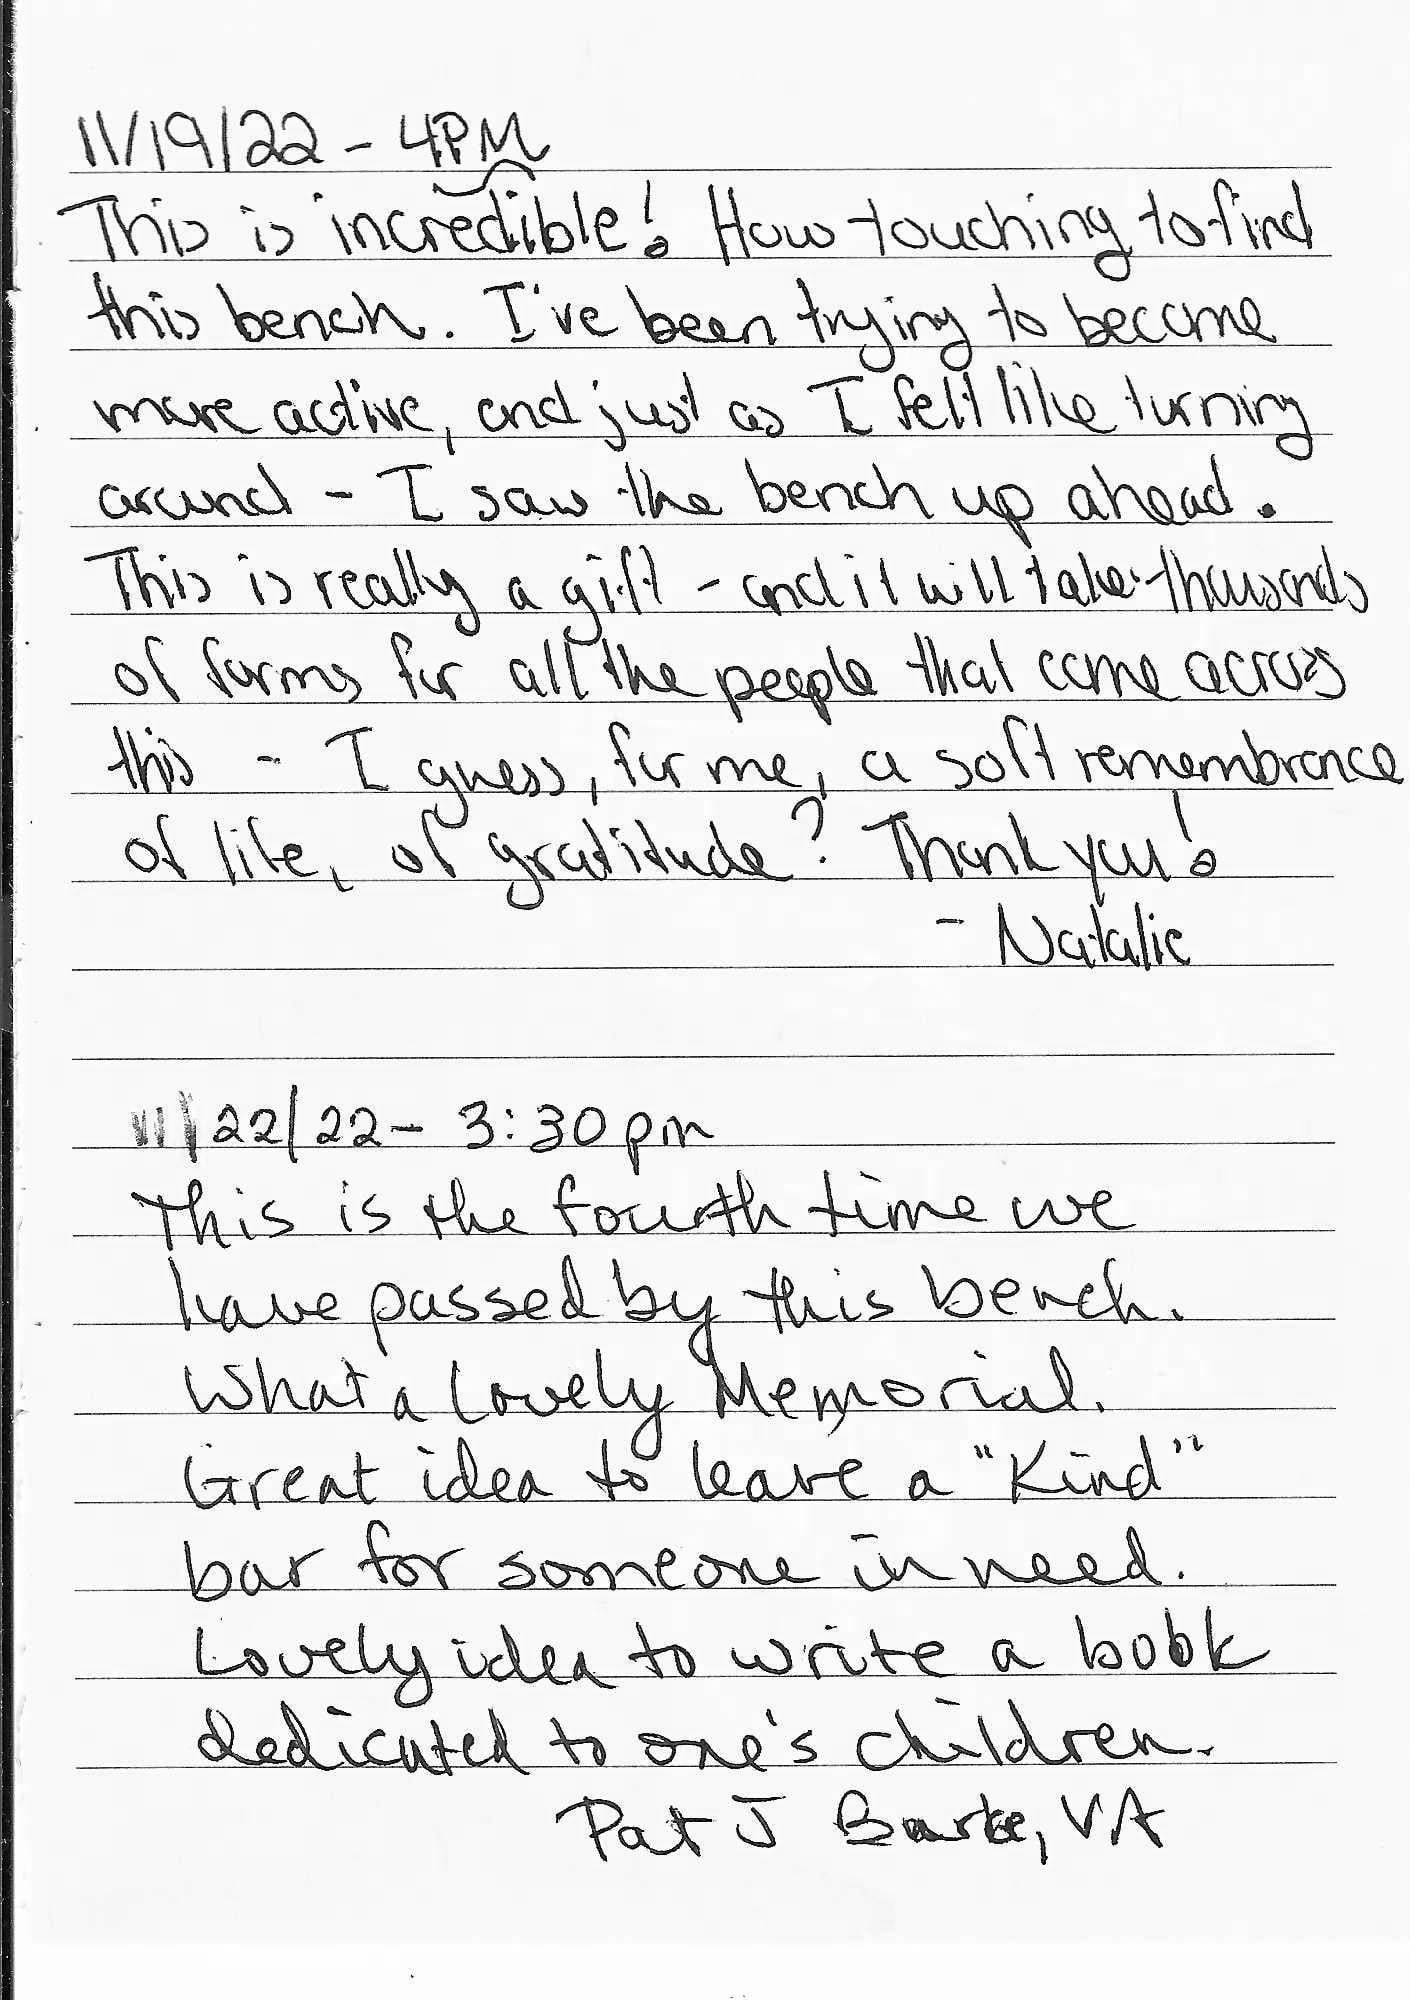 11/19/22 - 4PM
This is incredible! How touching to find
this bench. I've been trying to become
more active, and just as I felt like turning
around - I saw the bench up ahead.
This is really a gift - and it will take thousands
of forms for all the people that come across
this - I guess, for me, a soft remembrance
of life, of gratitude? Thank you!
- Natalie
11/22/22 - 3:30pm
This is the fourth time we
have passed by this bench.
What a Lovely Memorial.
Great idea to leave a "Kind"
bar for someone in need.
Lovely idea to write a book
dedicated to one's children.
Pat J Burke, VA